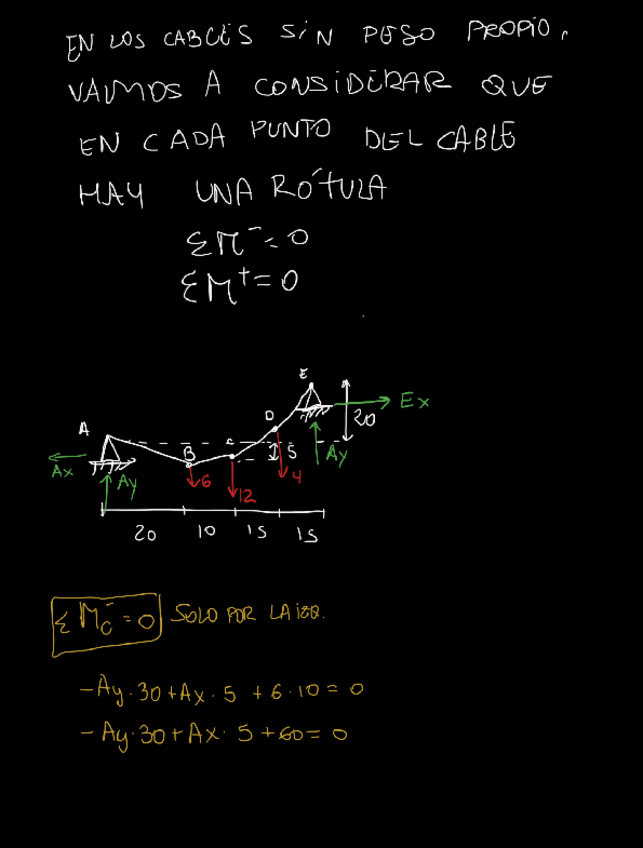 EN LOS CABLES SIN PESO PROPIO,
VAMOS A CONSIDERAR QUE
EN CADA PUNTO DEL CABLE
HAY UNA RÓTULA
ΣM⁻=0
ΣM⁺=0
E
Ex
20
D
A
C
B
5
Ax
Ay
6
12
4
Ay
20 10 15 15
ΣMc⁻=0 SOLO POR LA IZQ.
-Ay·30+Ax·5+6·10=0
-Ay·30+Ax·5+60=0